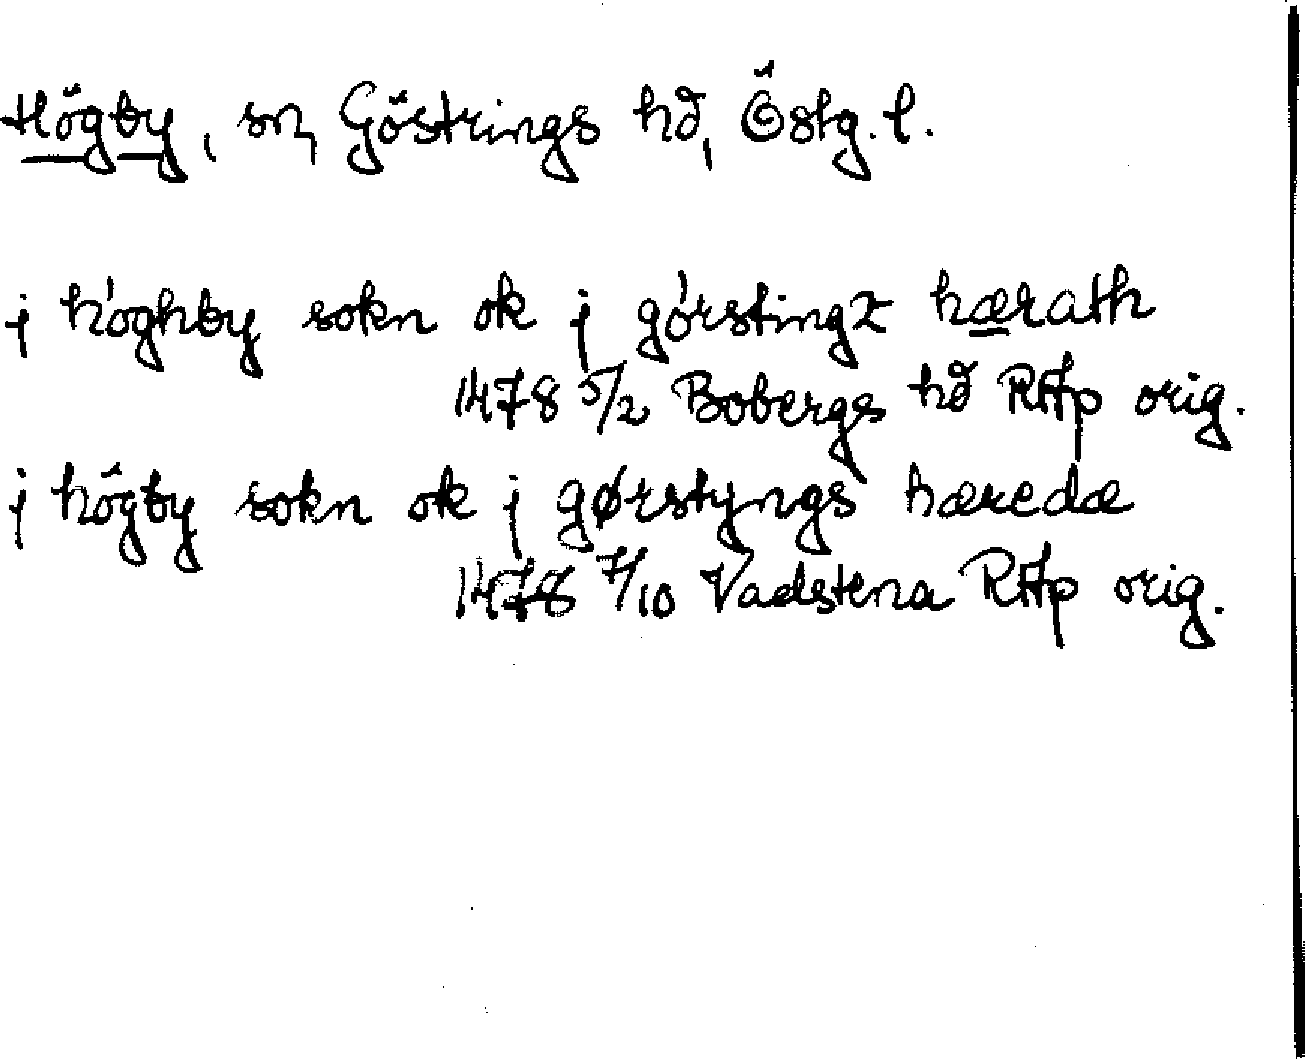 Högby, sn, Göstrings hd, Östg. l.
j hóghby sokn ok j górstingz hærath
1478 5/2 Bobergs hd RAp orig.
j högby sokn ok j gørstyngs hæredæ
1478 7/10 Vadstena RAp orig.